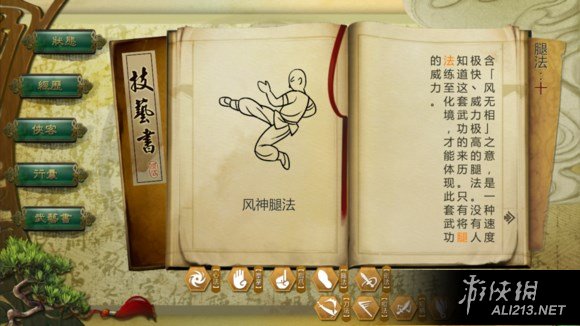 狀態
經歷
俠客
行囊
武藝書
技藝書
风神腿法
腿法：十
含「风无相」之意，是一种速度
极快、威力极高的腿法。没有人
知道这套武功的来历。只有将腿
法练至化境，才能体现此套武功
的威力。
游侠網
ALI213.NET